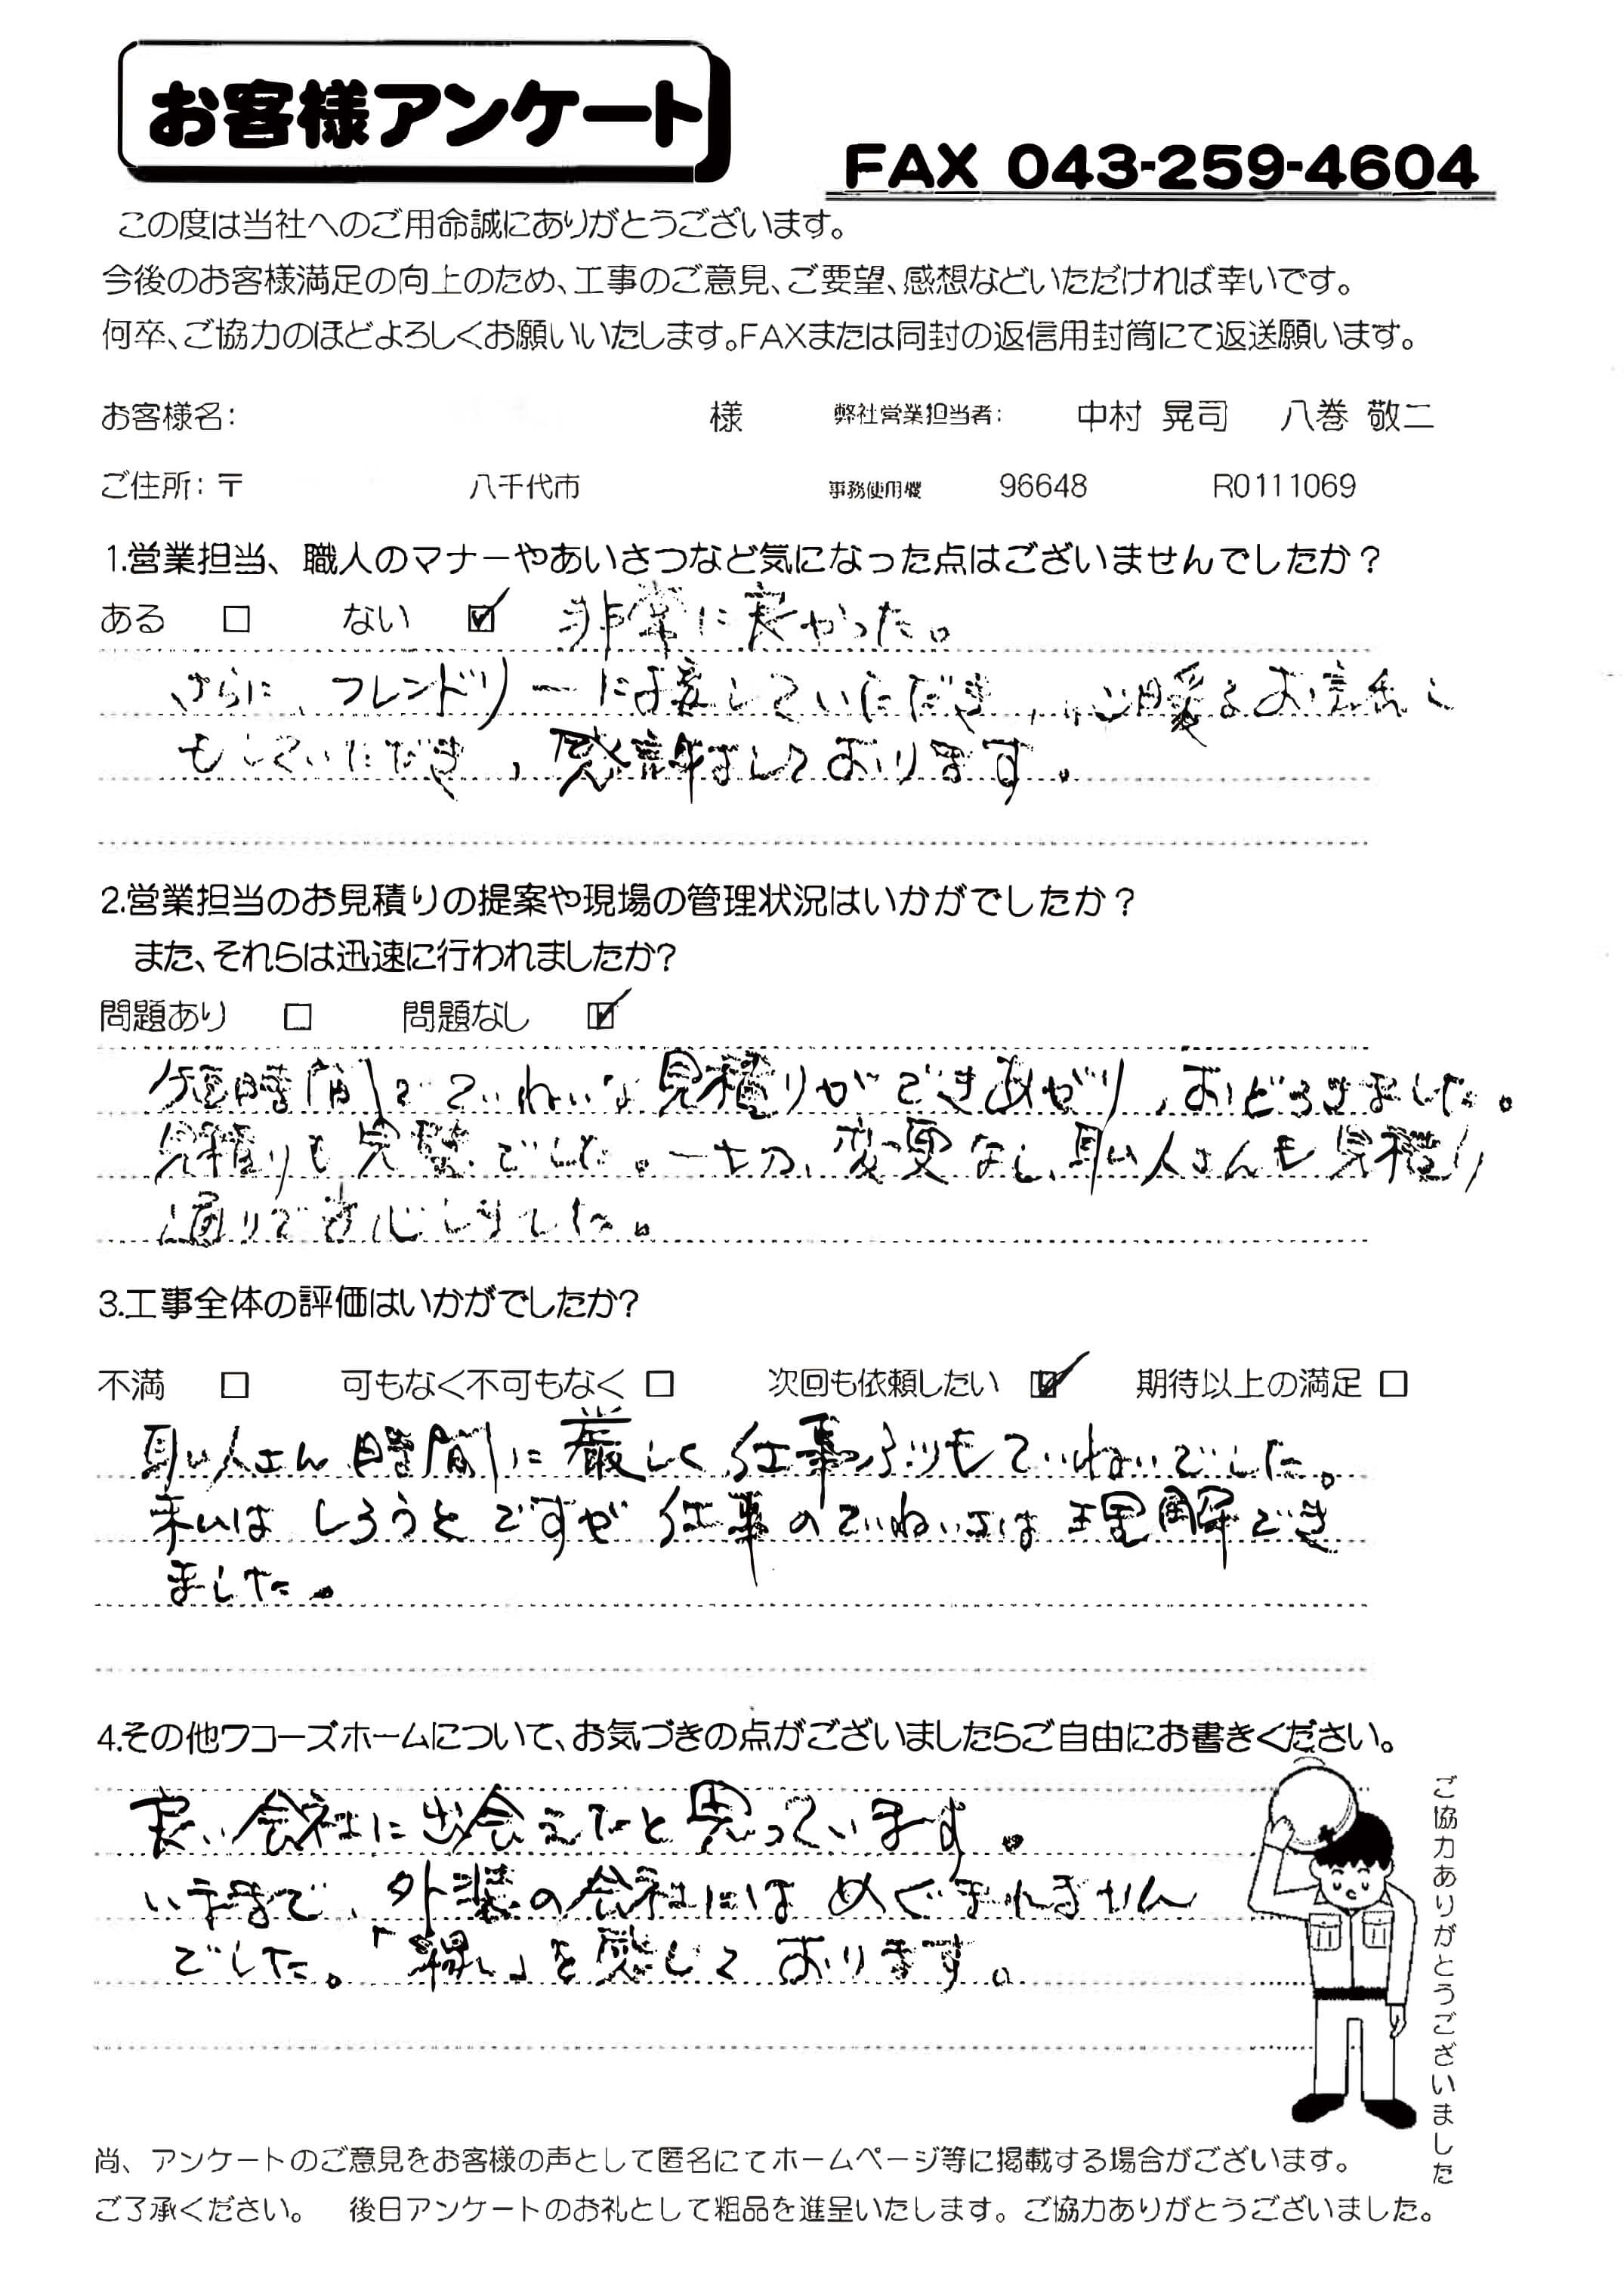 お客様アンケート
FAX 043-259-4604
この度は当社へのご用命誠にありがとうございます。
今後のお客様満足の向上のため、工事のご意見、ご要望、感想などいただければ幸いです。
何卒、ご協力のほどよろしくお願いいたします。FAXまたは同封の返信用封筒にて返送願います。
お客様名: 様 弊社営業担当者: 中村 晃司 八巻 敬二
ご住所:〒 八千代市 事務使用欄 96648 R0111069
1.営業担当、職人のマナーやあいさつなど気になった点はございませんでしたか？
ある □ ない ☑ 非常に良かった。
さらに、フレンドリーに接していただき、心暖まるお
もしていただき、感謝しております。
2.営業担当のお見積りの提案や現場の管理状況はいかがでしたか？
また、それらは迅速に行われましたか?
問題あり □ 問題なし ☑
短時間でていねいな見積りができあがり、おどろきました。
見積りも完璧でした。一切、変更なし、職人さんも見積り
通りで安心しました。
3.工事全体の評価はいかがでしたか?
不満 □ 可もなく不可もなく □ 次回も依頼したい ☑ 期待以上の満足 □
職人さん時間に厳しく仕事ぶりもていねいでした。
私はしろうとですが仕事のていねいさは理解でき
ました。
4.その他ワコーズホームについて、お気づきの点がございましたらご自由にお書きください。
良い会社に出会えたと思っています。
いままで、外装の会社にはめぐまれません
でした。「縁」を感じております。
ご協力ありがとうございました
尚、アンケートのご意見をお客様の声として匿名にてホームページ等に掲載する場合がございます。
ご了承ください。 後日アンケートのお礼として粗品を進呈いたします。ご協力ありがとうございました。